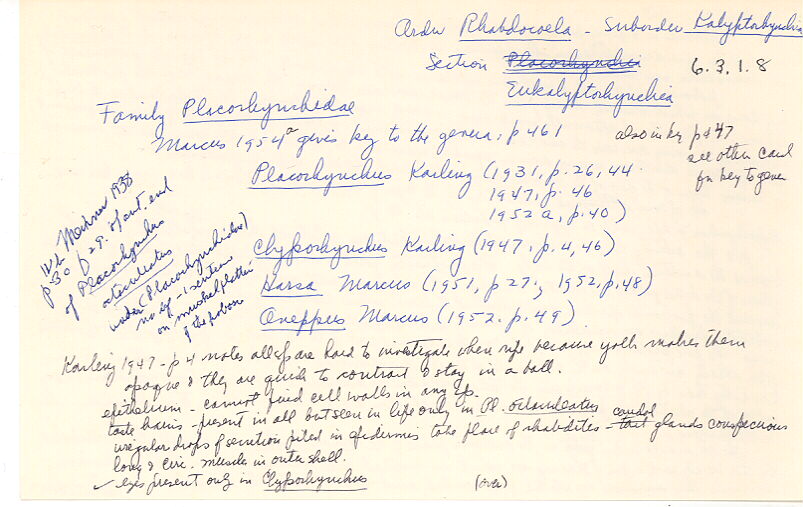 Order Rhabdocoela - Suborder Kalyptorhynchia
Section Placorhynchia 6.3.1.8
Eukalyptorhynchia
Family Placorhynchidae
Marcus 1954a gives key to the genera, p 461
also in key p 447
see other card
for key to genera
Placorhynchus Karling (1931, p. 26, 44
1947, p. 46
1952a, p. 40)
Clyporhynchus Karling (1947, p. 4, 46)
Harsa Marcus (1951, p 27; 1952, p. 48)
Oneppus Marcus (1952. p. 49)
Meixner 1938
p. 30 fig 29. of ant. end
of Placorhynchus
octaculeatus
under (Placorhynchidae)
no sp - 1 sentence
on muscle plates
of the proboscis
Karling 1947 - p 4 notes all sp are hard to investigate when ripe because yolk makes them
opaque & they are quick to contract & stay in a ball.
epithelium - cannot find cell walls in any sp.
taste hairs - present in all but seen in life only in Pl. octaculeatus
irregular drops of secretion filled in epidermis take place of rhabdites - caudal glands conspicuous
long & circ. muscles in outer shell.
✓ eyes present only in Clyporhynchus (over)